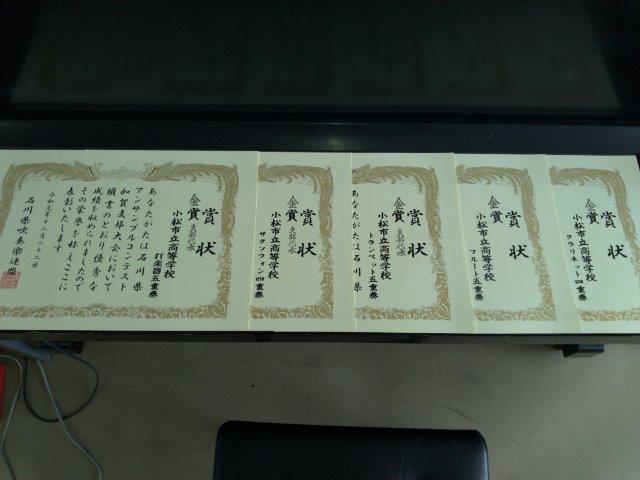 賞状
金賞 支部代表
小松市立高等学校
打楽器五重奏
あなたがたは石川県
アンサンブルコンテスト
加賀支部大会において
頭書のとおり優秀な
成績を収められましたので
その栄誉を称えここに
表彰いたします
令和元年十二月二十二日
石川県吹奏楽連盟
賞状
金賞 支部代表
小松市立高等学校
サクソフォン四重奏
賞状
金賞 支部代表
小松市立高等学校
トランペット五重奏
あなたがたは石川県
賞状
金賞
小松市立高等学校
フルート五重奏
賞状
金賞
小松市立高等学校
クラリネット四重奏